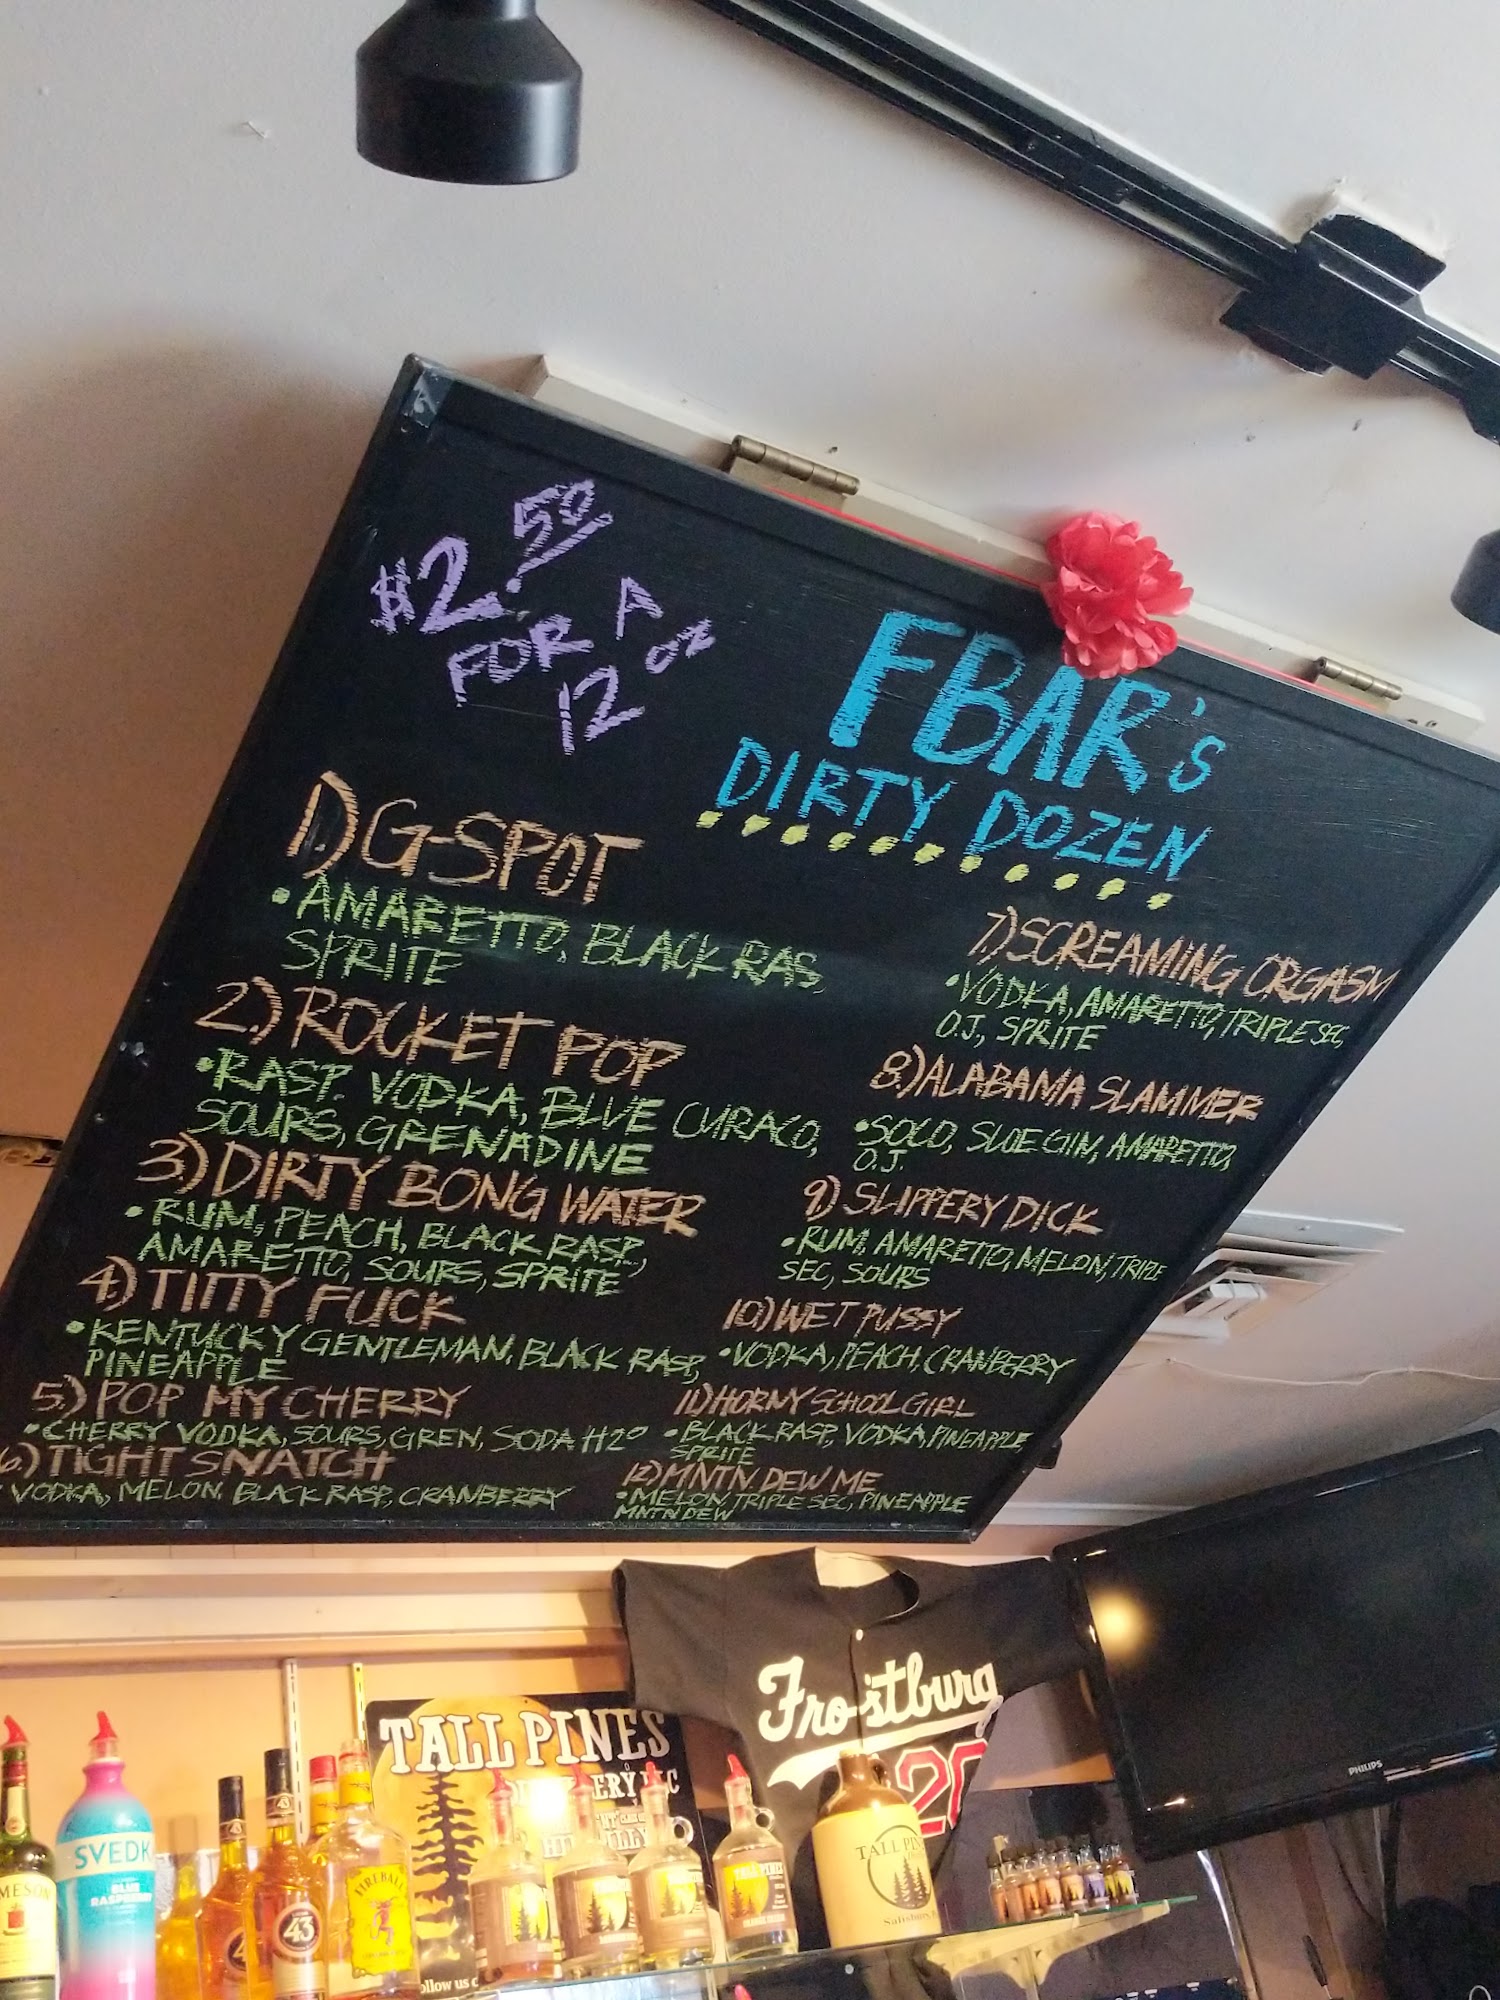 $2.50
FOR A
12 OZ
FBAR's
DIRTY DOZEN
1.) G-SPOT
• AMARETTO, BLACK RAS,
SPRITE
2.) ROCKET POP
• RASP. VODKA, BLUE CURACO,
SOURS, GRENADINE
3.) DIRTY BONG WATER
• RUM, PEACH, BLACK RASP.,
AMARETTO, SOURS, SPRITE
4.) TITTY FUCK
• KENTUCKY GENTLEMAN, BLACK RASP,
PINEAPPLE
5.) POP MY CHERRY
• CHERRY VODKA, SOURS, GREN, SODA H2O
6.) TIGHT SNATCH
VODKA, MELON, BLACK RASP, CRANBERRY
7.) SCREAMING ORGASM
• VODKA, AMARETTO, TRIPLE SEC,
O.J., SPRITE
8.) ALABAMA SLAMMER
• SOCO, SLOE GIN, AMARETTO,
O.J.
9.) SLIPPERY DICK
• RUM, AMARETTO, MELON, TRIPLE
SEC, SOURS
10.) WET PUSSY
• VODKA, PEACH, CRANBERRY
11.) HORNY SCHOOL GIRL
• BLACK RASP, VODKA, PINEAPPLE,
SPRITE
12.) MNTN. DEW ME
• MELON, TRIPLE SEC, PINEAPPLE
MNTN DEW
Frostburg
20
PHILIPS
TALL PINES
ollow us
SVEDK
BLUE
RASPBERRY
MESON
43
FIREBALL
TALL PINES
TALL PIN
Salisbury